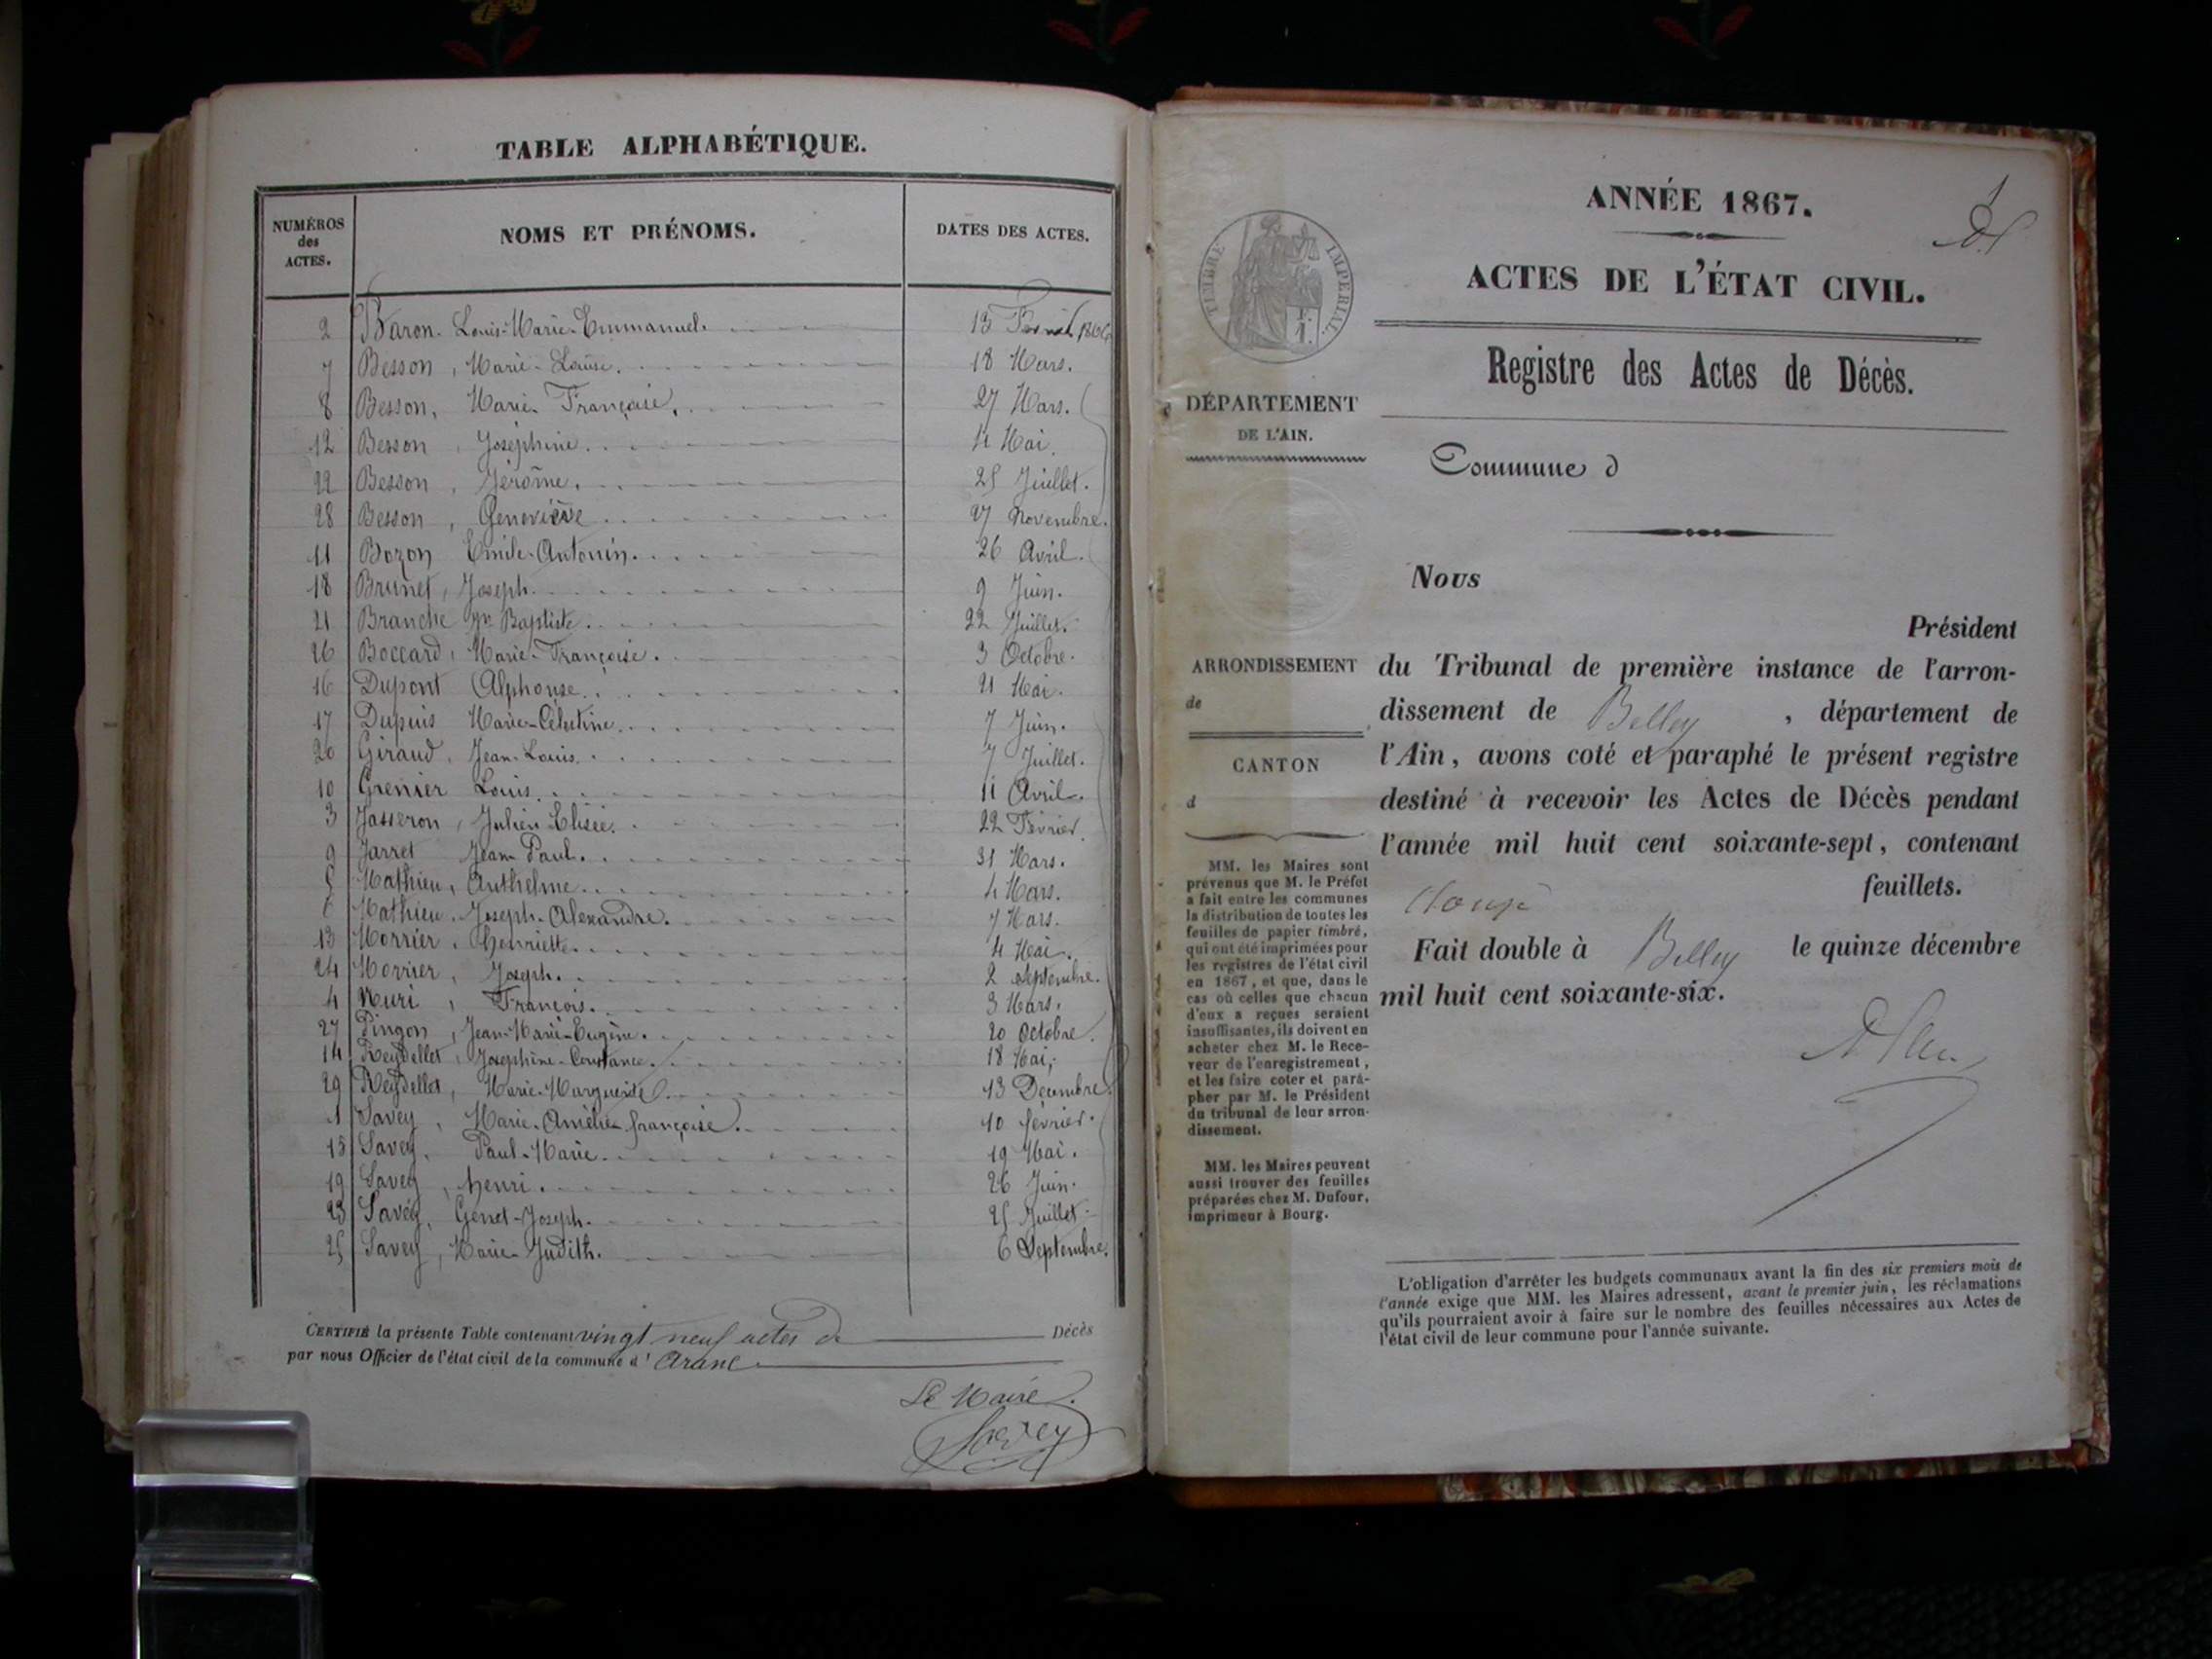 TABLE ALPHABÉTIQUE.
NUMÉROS des ACTES.
NOMS ET PRÉNOMS.
DATES DES ACTES.
2 Baron. Louis-Marie-Emmanuel. 13 Février 1866
7 Besson, Marie-Louise. 18 Mars.
8 Besson, Marie-Française. 27 Mars.
12 Besson, Joséphine. 4 Mai.
22 Besson, Jérôme. 25 Juillet.
28 Besson, Geneviève. 27 Novembre.
11 Bozon Emile-Antonin. 26 Avril.
18 Brunet, Joseph. 9 Juin.
21 Branche Jn Baptiste. 22 Juillet.
26 Boccard, Marie-Françoise. 3 Octobre.
16 Dupont Alphonse. 21 Mai.
17 Dupuis Marie-Célestine. 7 Juin.
20 Giraud, Jean-Louis. 7 Juillet.
10 Grenier Louis. 11 Avril.
3 Jasseron, Julien Elisée. 22 Février.
9 Jarret Jean Paul. 31 Mars.
5 Mathieu, Anthelme. 4 Mars.
6 Mathieu. Joseph-Alexandre. 7 Mars.
13 Morrier. henriette. 4 Mai.
24 Morrier, Joseph. 2 Septembre.
4 Muri, François. 3 Mars.
27 Pingon, Jean-Marie-Eugène. 20 Octobre.
14 Reydellet, Joséphine-Constance. 18 Mai.
29 Reydellet, Marie-Marguerite. 13 Décembre
1 Savey, Marie-Amélie-françoise. 10 février.
15 Savey. Paul-Marie. 19 Mai.
19 Savey, henri. 26 Juin.
23 Savey, Genet-Joseph. 25 Juillet.
25 Savey, Marie-Judith. 6 Septembre.
CERTIFIÉ la présente Table contenant vingt neuf actes de Décès
par nous Officier de l'état civil de la commune d' Aranc
Le Maire.
Savey
ANNÉE 1867.
1
ACTES DE L'ÉTAT CIVIL.
TIMBRE IMPÉRIAL.
Registre des Actes de Décès.
DÉPARTEMENT
DE L'AIN.
Commune d
Nous
Président
ARRONDISSEMENT
de
CANTON
d
du Tribunal de première instance de l'arron-
dissement de Belley, département de
l'Ain, avons coté et paraphé le présent registre
destiné à recevoir les Actes de Décès pendant
l'année mil huit cent soixante-sept, contenant
douze feuillets.
Fait double à Belley le quinze décembre
mil huit cent soixante-six.
MM. les Maires sont
prévenus que M. le Préfet
a fait entre les communes
la distribution de toutes les
feuilles de papier timbré,
qui ont été imprimées pour
les registres de l'état civil
en 1867, et que, dans le
cas où celles que chacun
d'eux a reçues seraient
insuffisantes, ils doivent en
acheter chez M. le Rece-
veur de l'enregistrement,
et les faire coter et para-
pher par M. le Président
du tribunal de leur arron-
dissement.
MM. les Maires peuvent
aussi trouver des feuilles
préparées chez M. Dufour,
imprimeur à Bourg.
L'obligation d'arrêter les budgets communaux avant la fin des six premiers mois de
l'année exige que MM. les Maires adressent, avant le premier juin, les réclamations
qu'ils pourraient avoir à faire sur le nombre des feuilles nécessaires aux Actes de
l'état civil de leur commune pour l'année suivante.